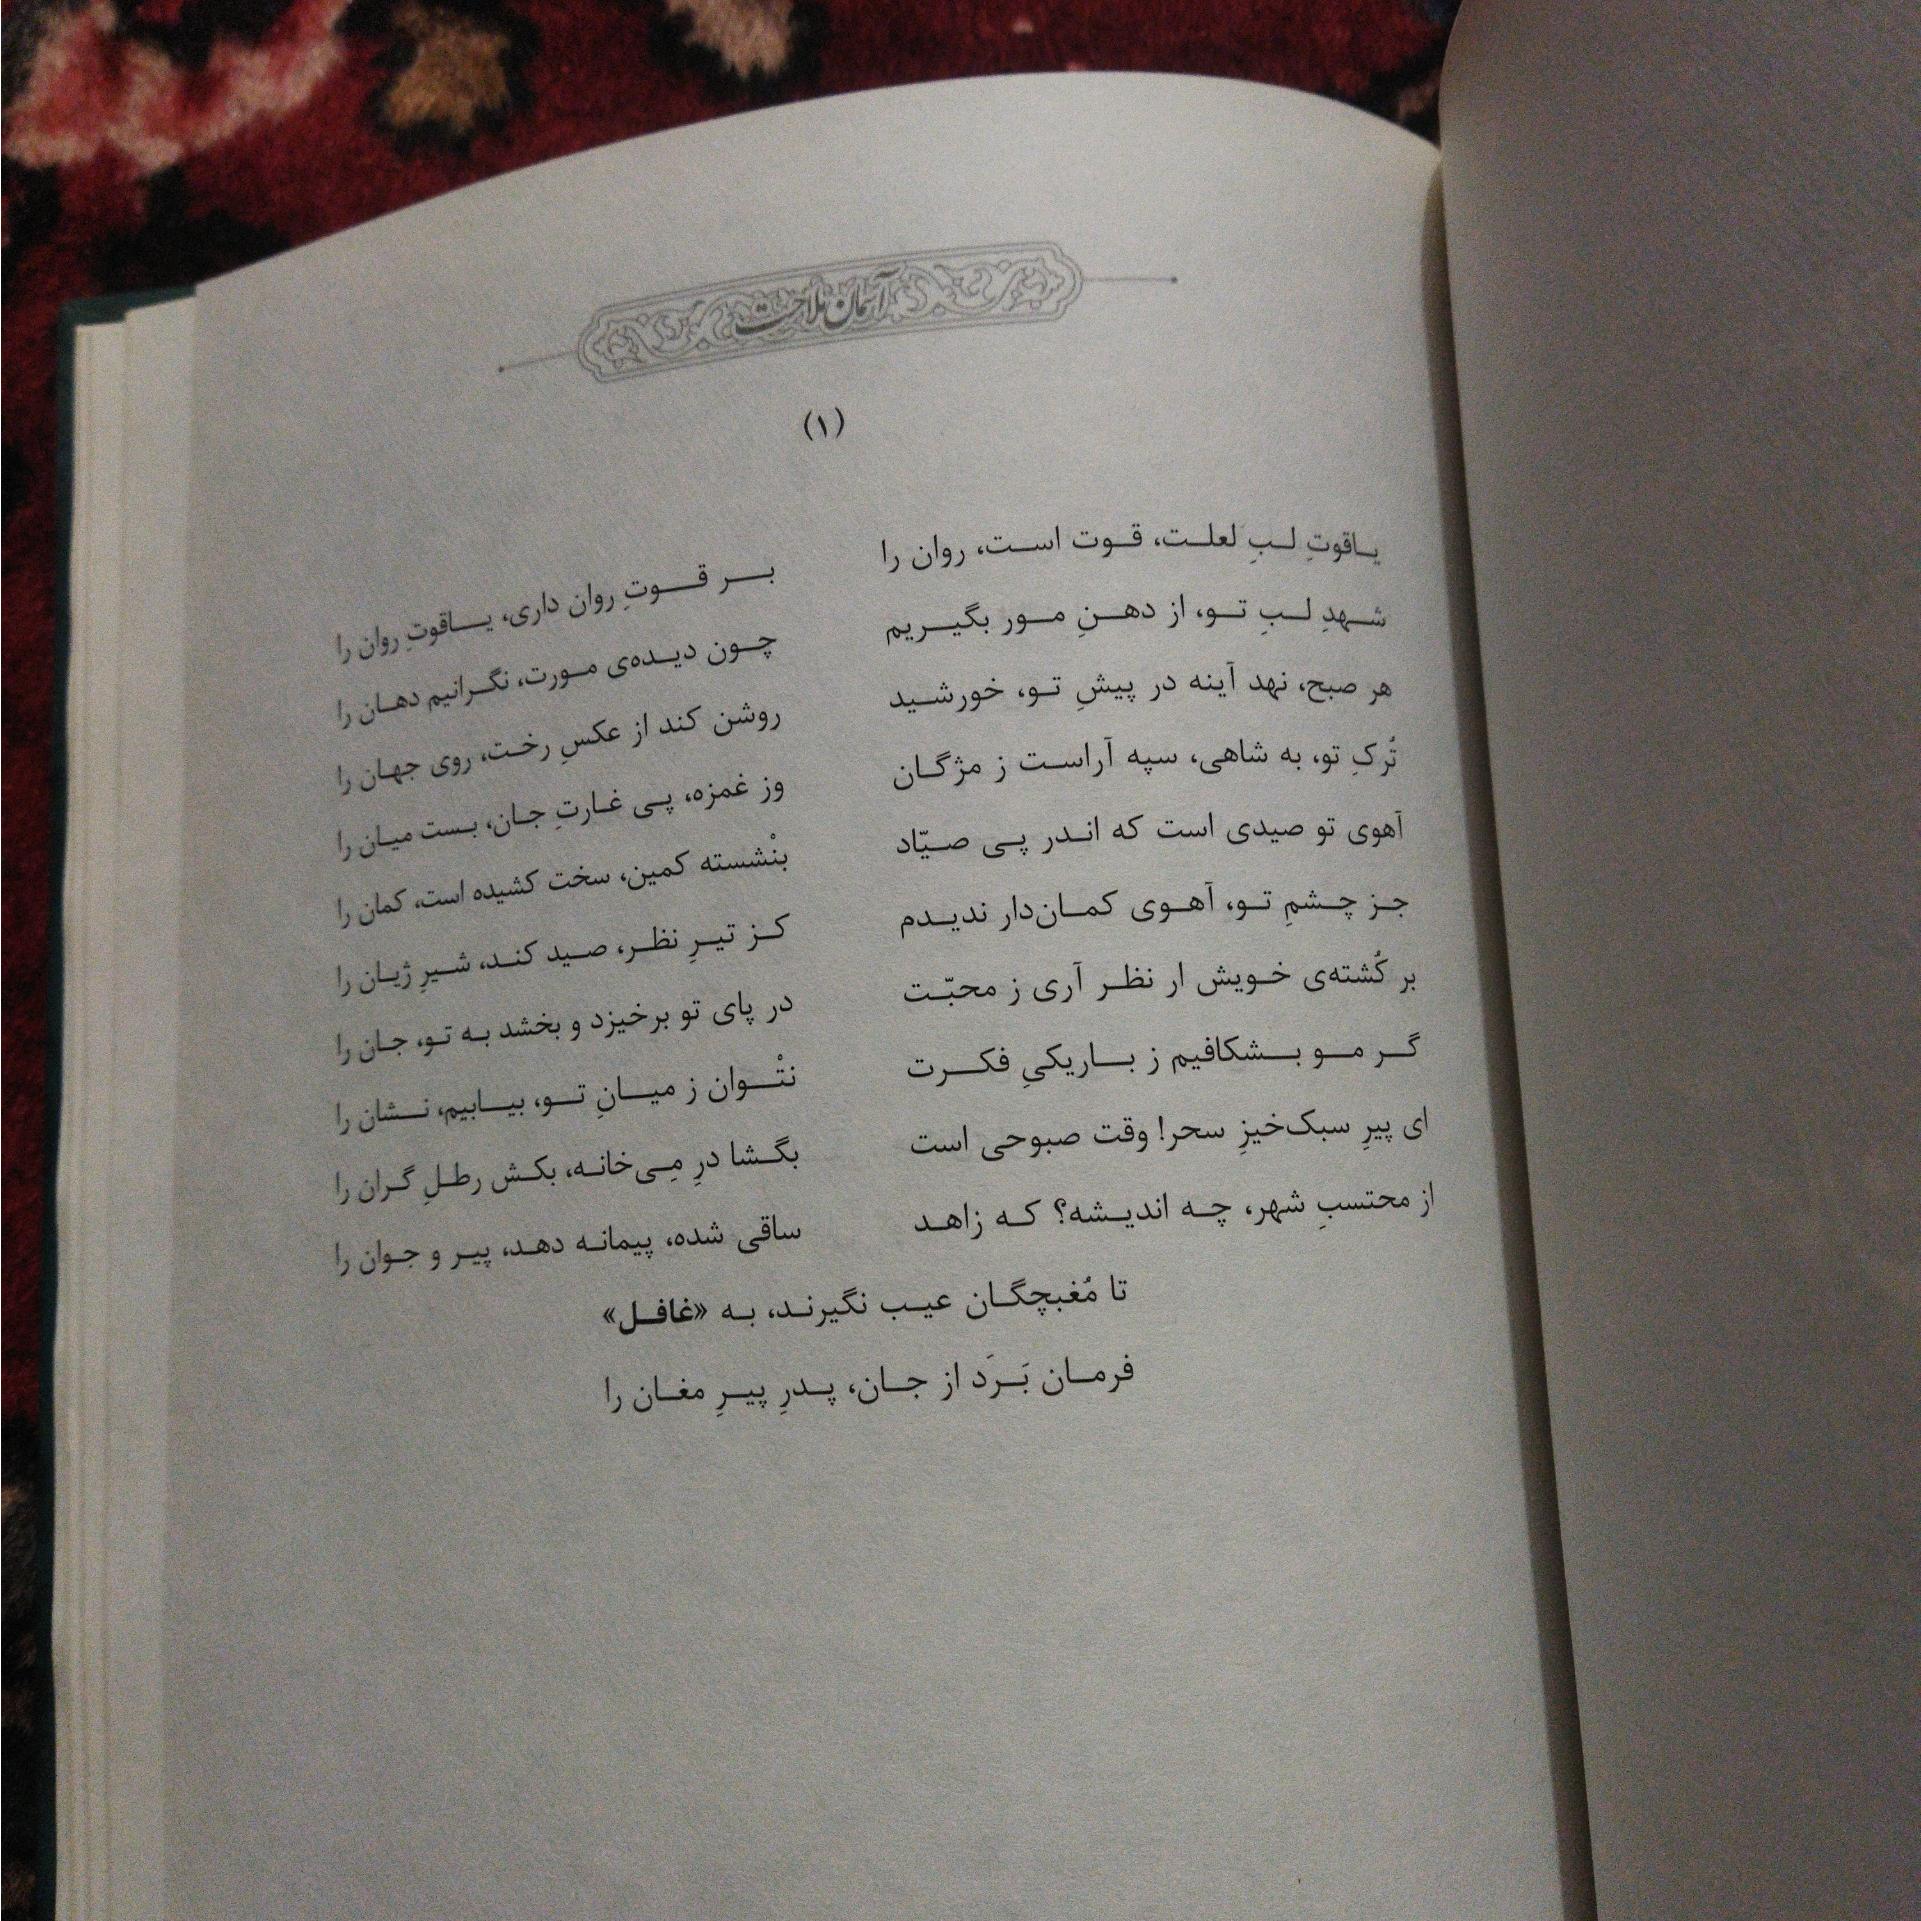 آسمان ملاحت
(۱)
یاقوتِ لبِ لعلت، قوت است، روان را
بر قوتِ روان داری، یاقوتِ روان را
شهدِ لبِ تو، از دهنِ مور بگیریم
چون دیده‌ی مورت، نگرانیم دهان را
هر صبح، نهد آینه در پیشِ تو، خورشید
روشن کند از عکسِ رخت، روی جهان را
تُرکِ تو، به شاهی، سپه آراست ز مژگان
وز غمزه، پی غارتِ جان، بست میان را
آهوی تو صیدی است که اندر پی صیّاد
بنْشسته کمین، سخت کشیده است، کمان را
جز چشمِ تو، آهوی کمان‌دار ندیدم
کز تیرِ نظر، صید کند، شیرِ ژیان را
بر کُشته‌ی خویش ار نظر آری ز محبّت
در پای تو برخیزد و بخشد به تو، جان را
گر مو بشکافیم ز باریکیِ فکرت
نتْوان ز میانِ تو، بیابیم، نشان را
ای پیرِ سبک‌خیزِ سحر! وقت صبوحی است
بگشا درِ مِی‌خانه، بکش رطلِ گران را
از محتسبِ شهر، چه اندیشه؟ که زاهد
ساقی شده، پیمانه دهد، پیر و جوان را
تا مُغبچگان عیب نگیرند، به «غافل»
فرمان بَرَد از جان، پدرِ پیرِ مغان را